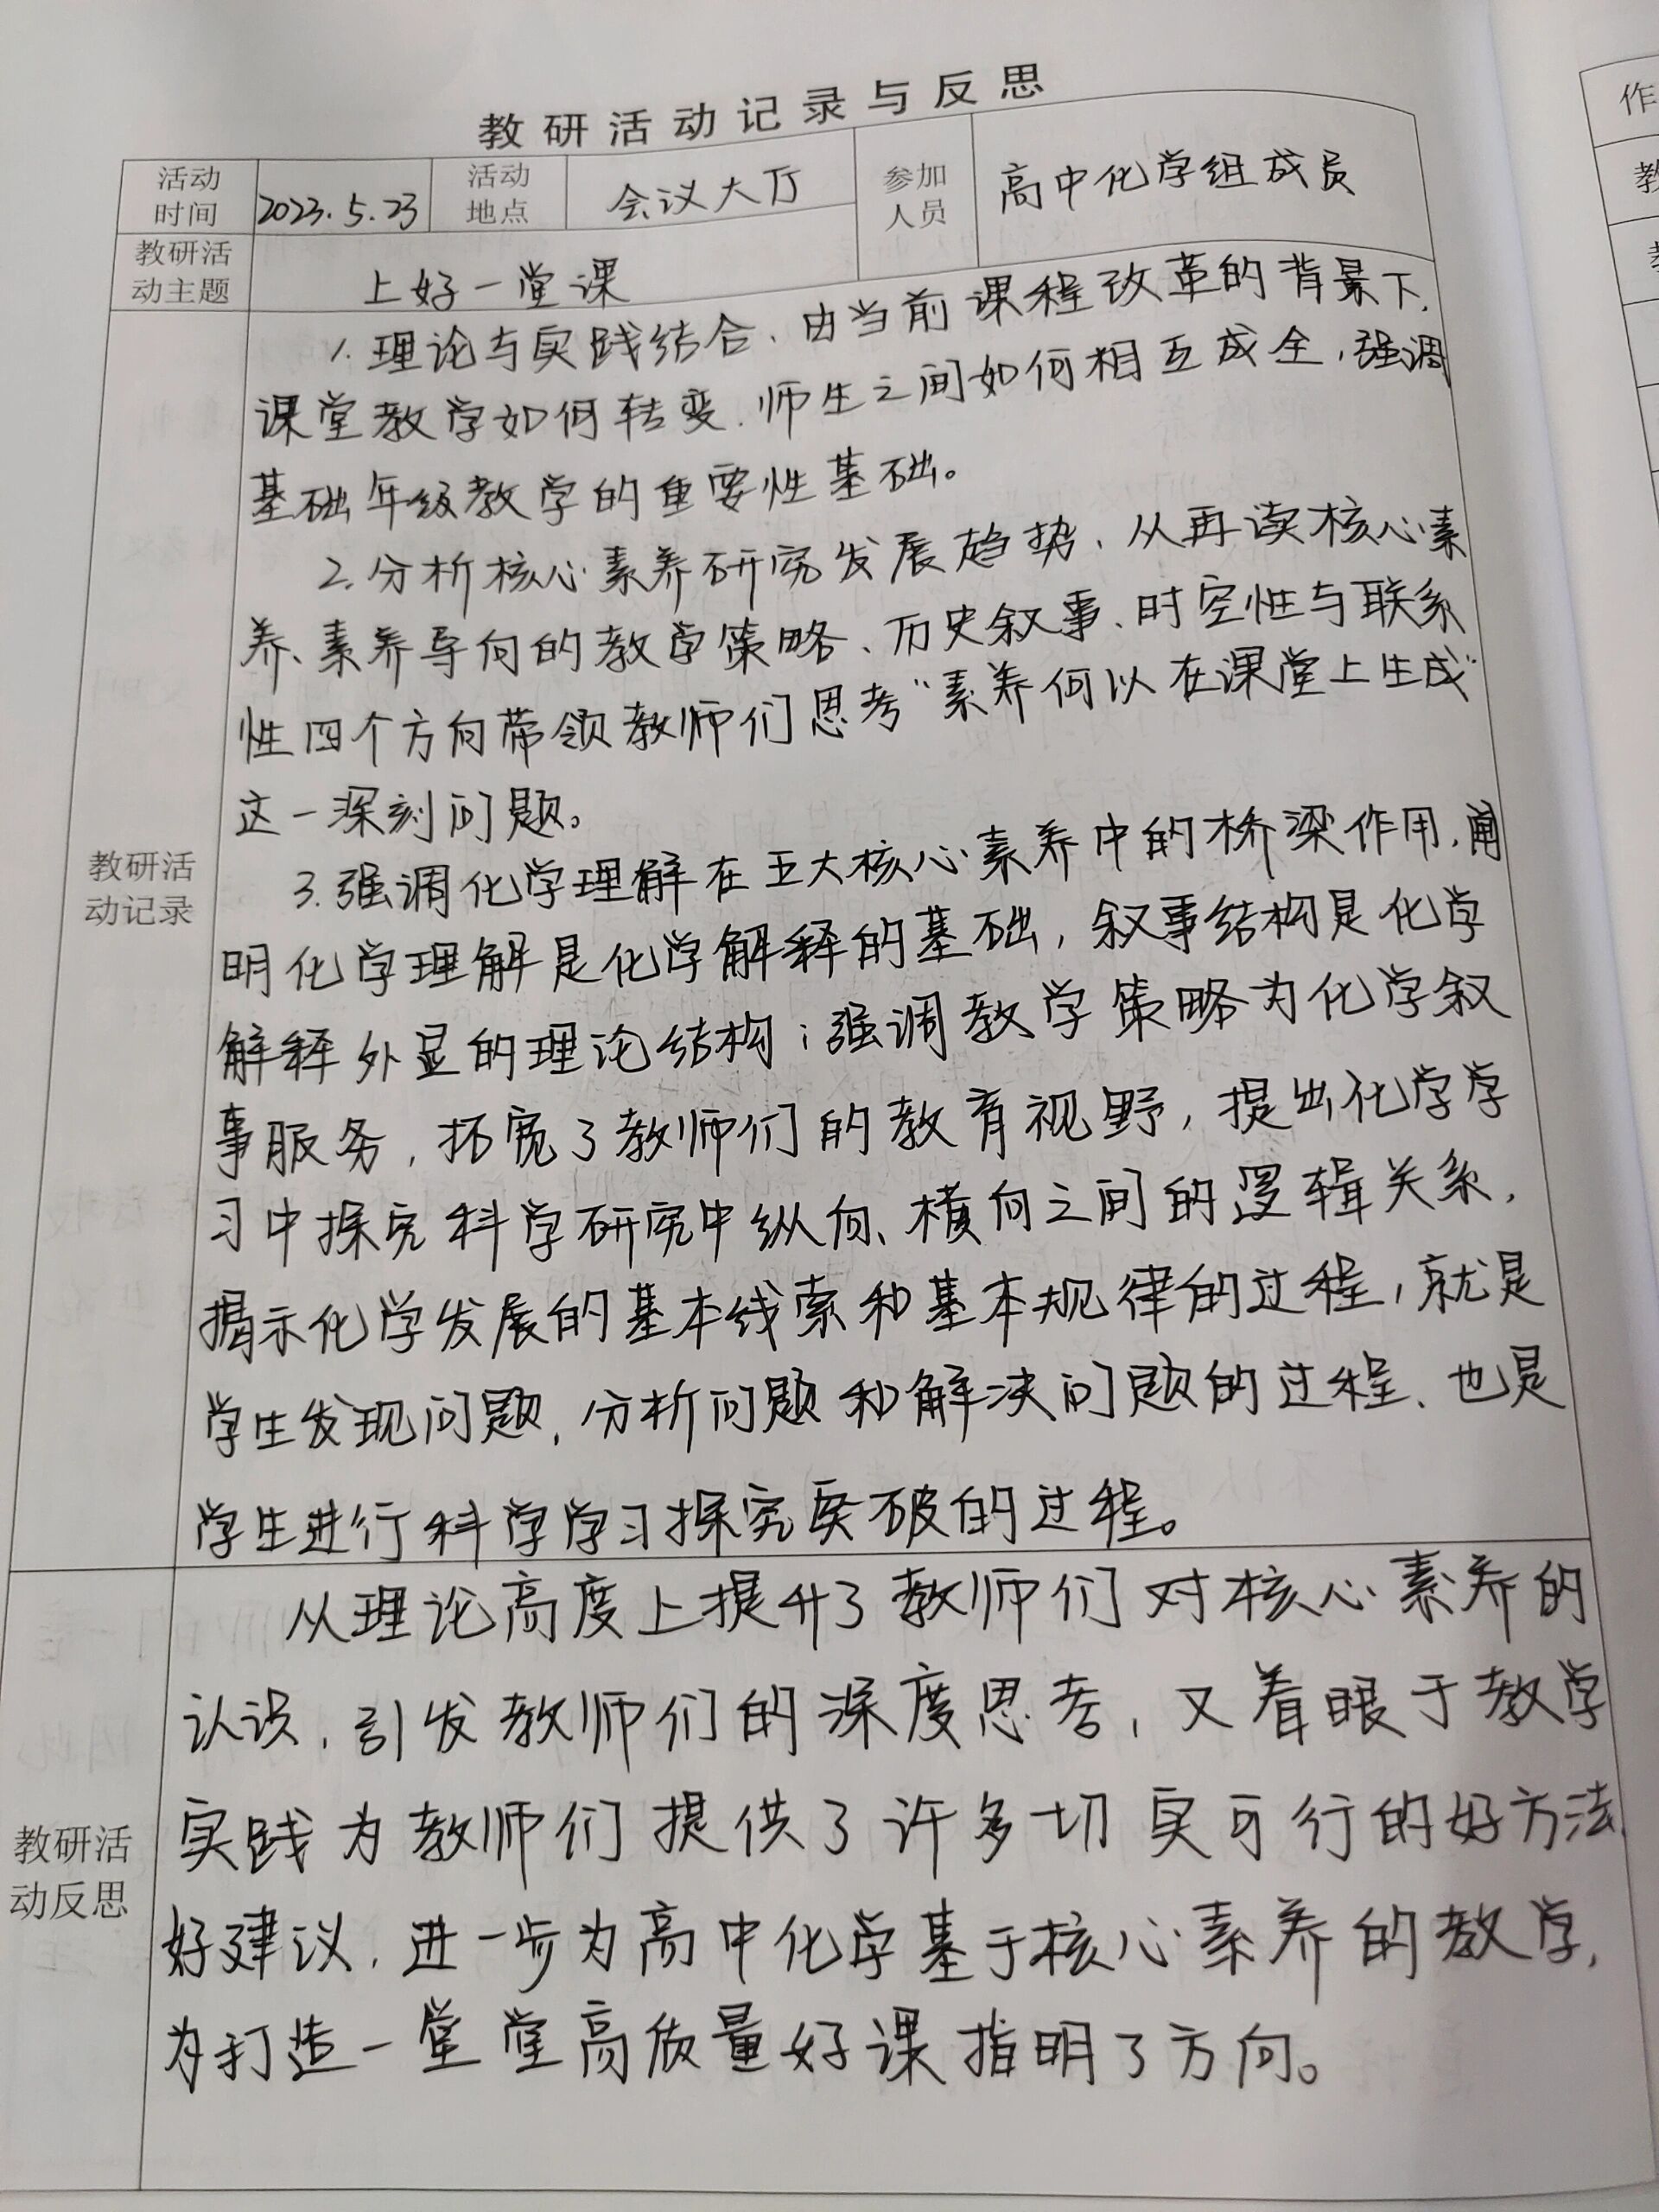 教研活动记录与反思
活动时间 2023.5.23 活动地点 会议大厅 参加人员 高中化学组成员
教研活动主题 上好一堂课
教研活动记录
1.理论与实践结合、由当前课程改革的背景下,
课堂教学如何转变.师生之间如何相互成全,强调
基础年级教学的重要性基础。
2.分析核心素养研究发展趋势、从再读核心素
养、素养导向的教学策略、历史叙事、时空性与联系
性四个方向带领教师们思考“素养何以在课堂上生成”
这一深刻问题。
3.强调化学理解在五大核心素养中的桥梁作用,阐
明化学理解是化学解释的基础,叙事结构是化学
解释外显的理论结构;强调教学策略为化学叙
事服务,拓宽了教师们的教育视野,提出化学学
习中探究科学研究中纵向、横向之间的逻辑关系,
揭示化学发展的基本线索和基本规律的过程,就是
学生发现问题,分析问题和解决问题的过程、也是
学生进行科学学习探究突破的过程。
教研活动反思
从理论高度上提升了教师们对核心素养的
认识,引发教师们的深度思考,又着眼于教学
实践为教师们提供了许多切实可行的好方法,
好建议,进一步为高中化学基于核心素养的教学,
为打造一堂堂高质量好课指明了方向。
作
教